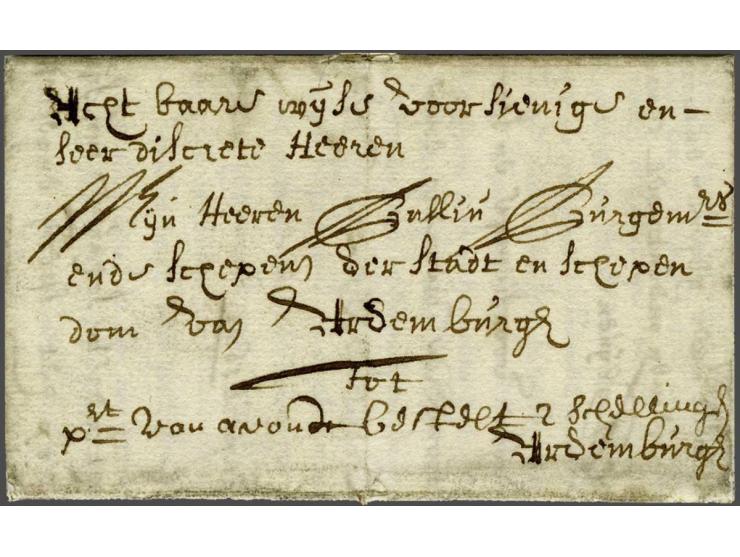 Acht baare wÿse voorsienige en-
seer discrete Heeren
Mÿn Heeren Balliu Burgemrs
ende schepens der stadt en schepen
dom van Ardemburgh
tot
prt van avondt bestelt 2 schellingh
Ardemburgh